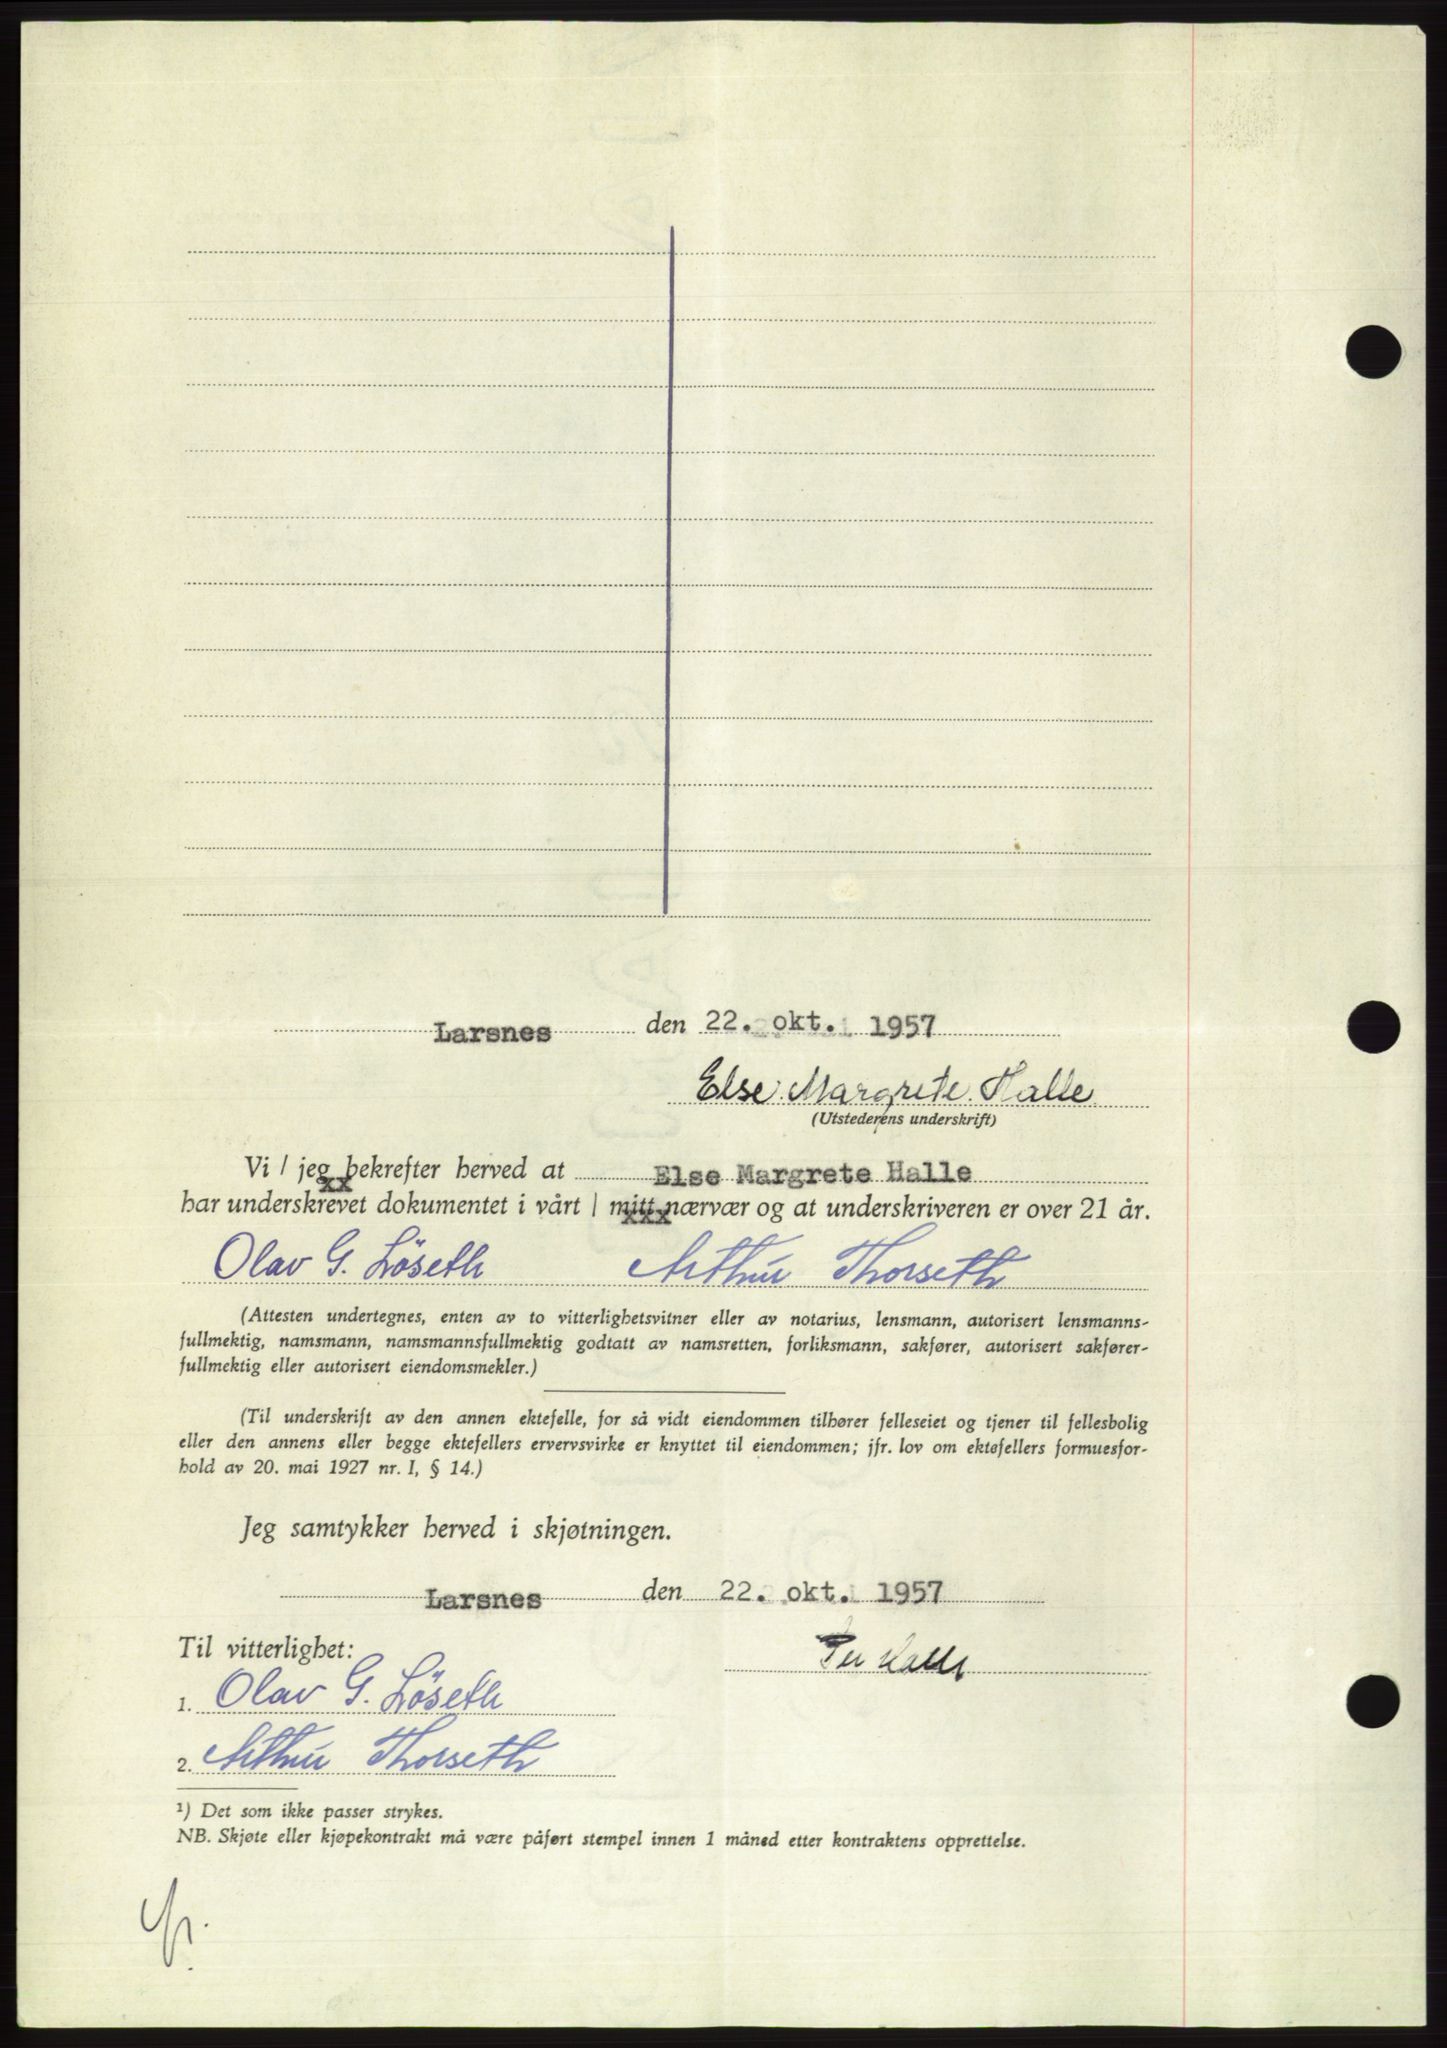 Larsnes den 22. okt. 1957
Else Margrete Halle
(Utstederens underskrift)
Vi / jeg bekrefter herved at Else Margrete Halle
har underskrevet dokumentet i vårt / mitt nærvær og at underskriveren er over 21 år.
Olav G. Löseth Arthur Thorseth
(Attesten undertegnes, enten av to vitterlighetsvitner eller av notarius, lensmann, autorisert lensmanns-
fullmektig, namsmann, namsmannsfullmektig godtatt av namsretten, forliksmann, sakfører, autorisert sakfører-
fullmektig eller autorisert eiendomsmekler.)
(Til underskrift av den annen ektefelle, for så vidt eiendommen tilhører felleseiet og tjener til fellesbolig
eller den annens eller begge ektefellers ervervsvirke er knyttet til eiendommen; jfr. lov om ektefellers formuesfor-
hold av 20. mai 1927 nr. 1, § 14.)
Jeg samtykker herved i skjøtningen.
Larsnes den 22. okt. 1957
Per Halle
Til vitterlighet:
1. Olav G. Löseth
2. Arthur Thorseth
¹) Det som ikke passer strykes.
NB. Skjøte eller kjøpekontrakt må være påført stempel innen 1 måned etter kontraktens opprettelse.